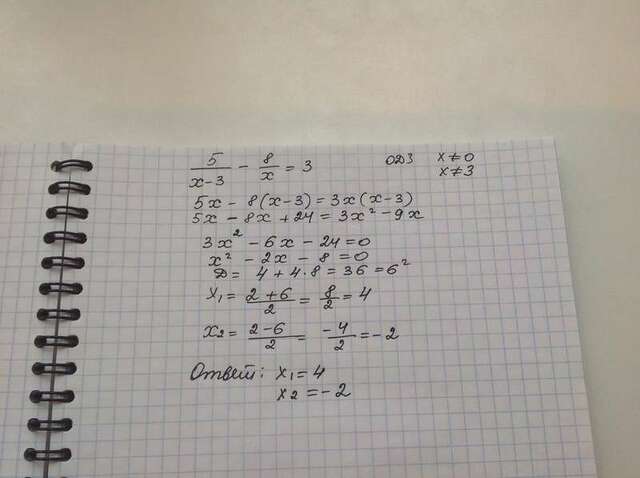 5/(x-3) - 8/x = 3   ОДЗ   x≠0
x≠3
5x - 8(x-3) = 3x(x-3)
5x - 8x + 24 = 3x² - 9x
3x² - 6x - 24 = 0
x² - 2x - 8 = 0
D = 4 + 4·8 = 36 = 6²
x₁ = (2+6)/2 = 8/2 = 4
x₂ = (2-6)/2 = -4/2 = -2
Ответ: x₁ = 4
x₂ = -2